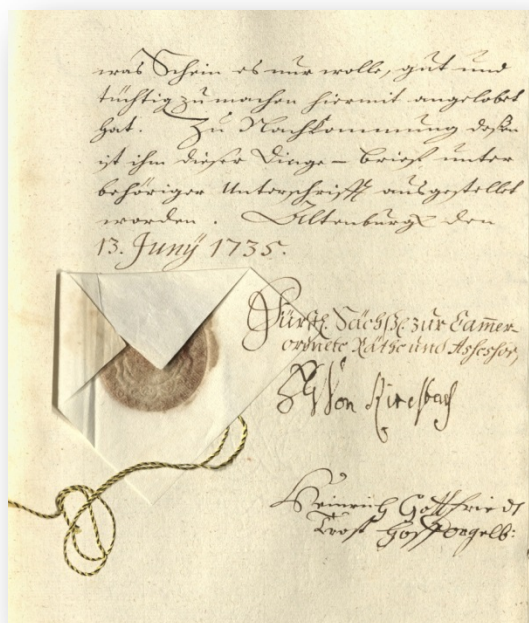 was Schein es nur wolle, gut und
tüchtig zu machen hiermit angelobet
hat. Zu Nachkommung deßen
ist ihm dieser Dinge-brief unter
behöriger Unterschrifft ausgestellet
worden. Altenburg den
13. Juny 1735.
Fürstl. Sächß. zur Camer
ordnete Räthe und Assessor,
Von
Heinrich Gottfriedt
Trost Hoff orgelb: